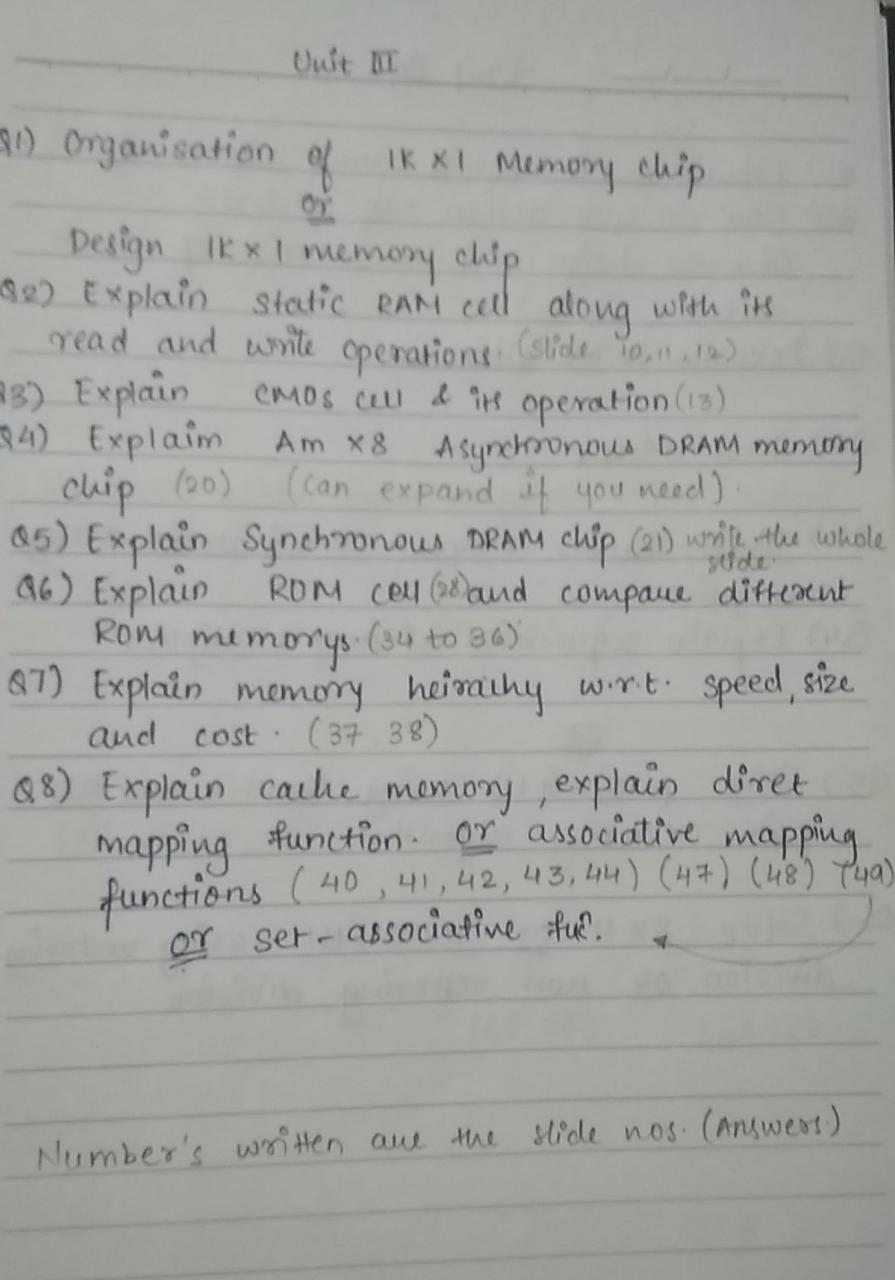 Unit III
Q1) Organisation of 1K X 1 Memory chip
or
Design 1K x 1 memory chip
Q2) Explain static RAM cell along with its
read and write operations. (slide 10,11,12)
Q3) Explain CMOS cell & its operation (13)
Q4) Explaim Am x8 Asynchronous DRAM memory
chip (20) (can expand if you need).
Q5) Explain Synchronous DRAM chip (21) write the whole
slide.
Q6) Explain ROM cell (28) and compaue different
ROM memorys. (34 to 36)
Q7) Explain memory heirachy w.r.t. speed, size
and cost. (37 38)
Q8) Explain cache memory, explain diret
mapping function. or associative mapping
functions (40, 41, 42, 43, 44) (47) (48) (49)
or set-associative fuⁿ.
Number's written aue the slide nos. (Answers.)